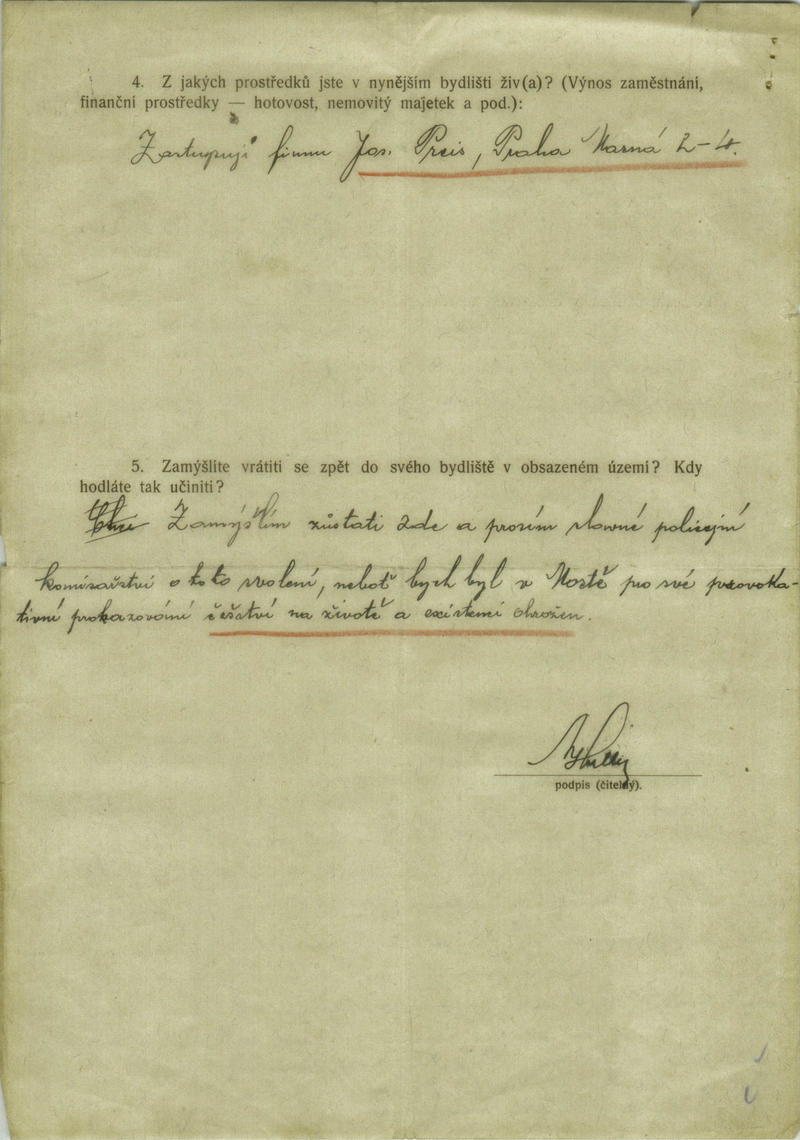 4. Z jakých prostředků jste v nynějším bydlišti živ(a)? (Výnos zaměstnání,
finanční prostředky — hotovost, nemovitý majetek a pod.):
Zastupuji firmu Jos. Preis, Praha Masná 2-4.
5. Zamýšlíte vrátiti se zpět do svého bydliště v obsazeném území? Kdy
hodláte tak učiniti?
Zamýšlím zůstati zde a prosím slavné policejní
komisařství o toto svolení, neboť bych byl v Mostě pro své provoka-
tivní prokazování češství na životě a existenci ohrožen.
podpis (čitelný).